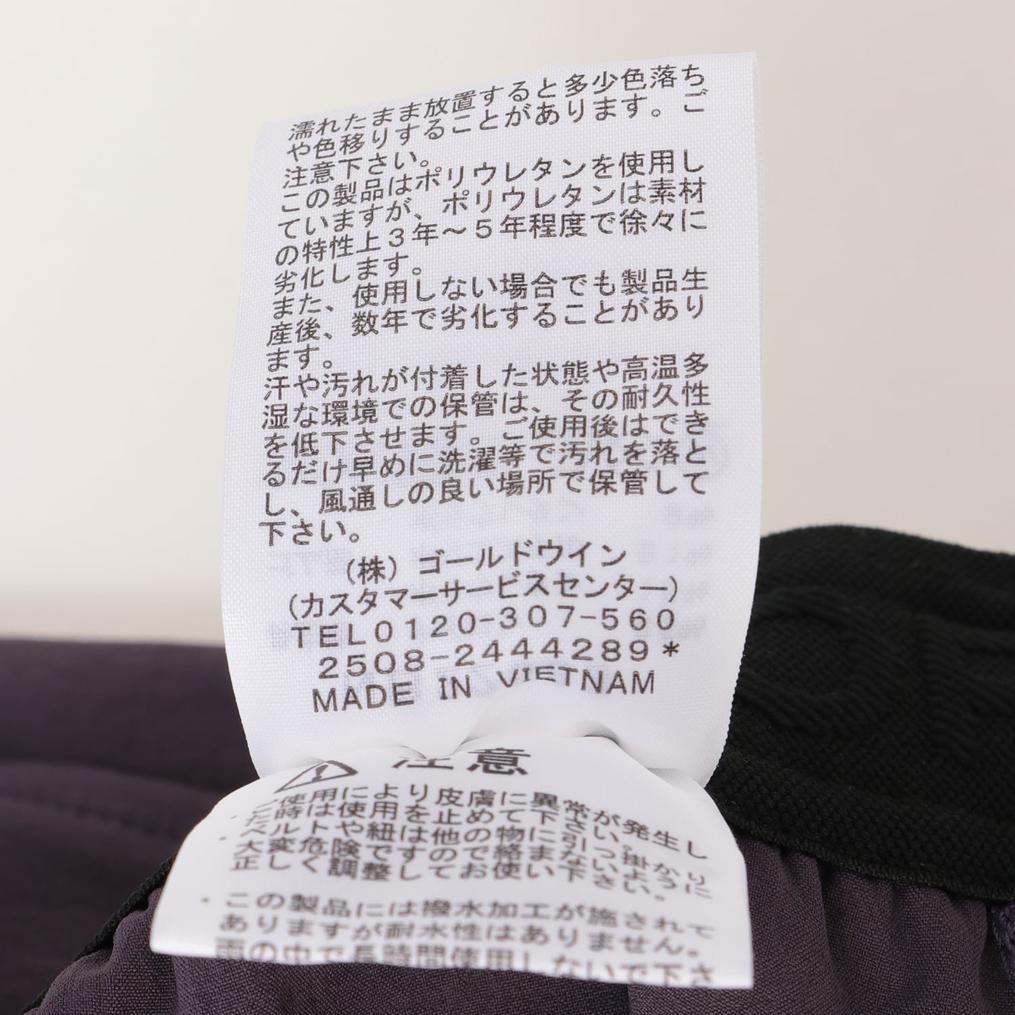 濡れたまま放置すると多少色落ち
や色移りすることがあります。ご
注意下さい。
この製品はポリウレタンを使用し
ていますが、ポリウレタンは素材
の特性上3年~5年程度で徐々に
劣化します。
また、使用しない場合でも製品生
産後、数年で劣化することがあり
ます。
汗や汚れが付着した状態や高温多
湿な環境での保管は、その耐久性
を低下させます。ご使用後はでき
るだけ早めに洗濯等で汚れを落と
し、風通しの良い場所で保管して
下さい。
(株)ゴールドウイン
(カスタマーサービスセンター)
TEL0120-307-560
2508-2444289*
MADE IN VIETNAM
注意
ご使用により皮膚に異常が発生し
た時は使用を止めて下さい。
・ベルトや紐は他の物に引っ掛かり
大変危険ですので絡まないように
正しく調整してお使い下さい。
・この製品には撥水加工が施されて
ありますが耐水性はありません。
雨の中で長時間使用しないで下さ